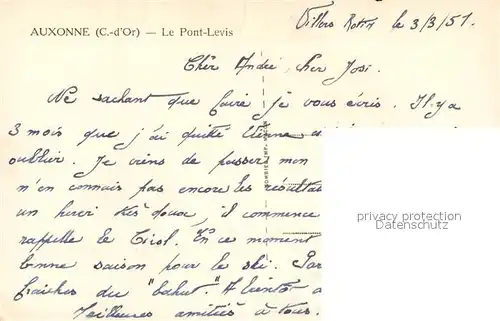 AUXONNE (C.-d'Or) — Le Pont-Levis
Villers Rotin le 3/3/51.
Cher André, cher Josi.
Ne sachant que faire je vous écris. Il y a
3 mois que j'ai quitté Vienne
oublier. Je viens de passer mon
n'en connais pas encore les résultat
un hiver très doux, il commence
rappelle le Tirol. En ce moment
bonne saison pour le ski. Par
fraîches du "bahut". A bientôt
Meilleures amitiés à tous.
privacy protection
Datenschutz